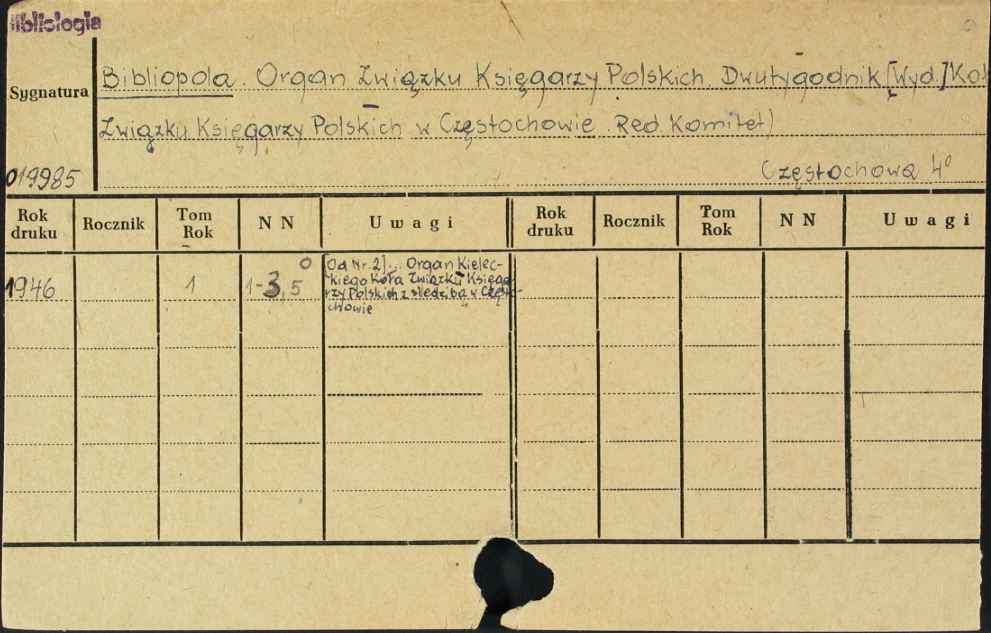 ibliologia
Sygnatura
Bibliopola. Organ Związku Księgarzy Polskich. Dwutygodnik [Wyd.] Koł
Związku Księgarzy Polskich w Częstochowie. Red Komitet)
019985
Częstochowa 4°
Rok druku Rocznik Tom Rok N N Uwagi Rok druku Rocznik Tom Rok N N Uwagi
1946 1 1-3,5 [Od Nr. 2]... Organ Kielec-
kiego Koła Związku Księga
rzy Polskich z siedzibą w Często-
chowie